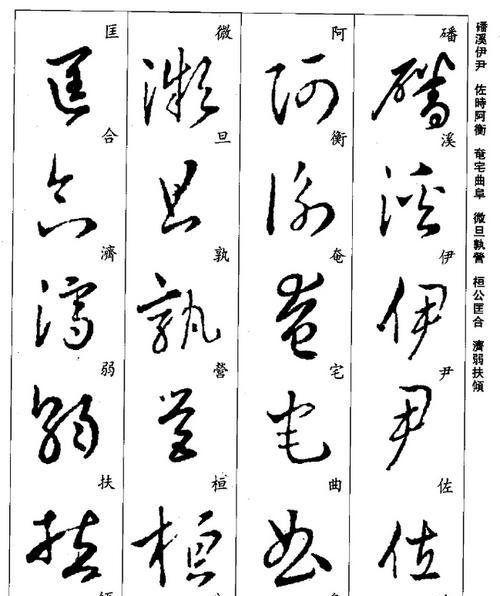 磻溪伊尹 佐時阿衡 奄宅曲阜 微旦孰營 桓公匡合 濟弱扶傾
磻溪伊尹佐
磻溪伊尹佐
阿衡奄宅曲
阿衡奄宅曲
微旦孰營桓
微旦孰營桓
匡合濟弱扶
匡合濟弱扶